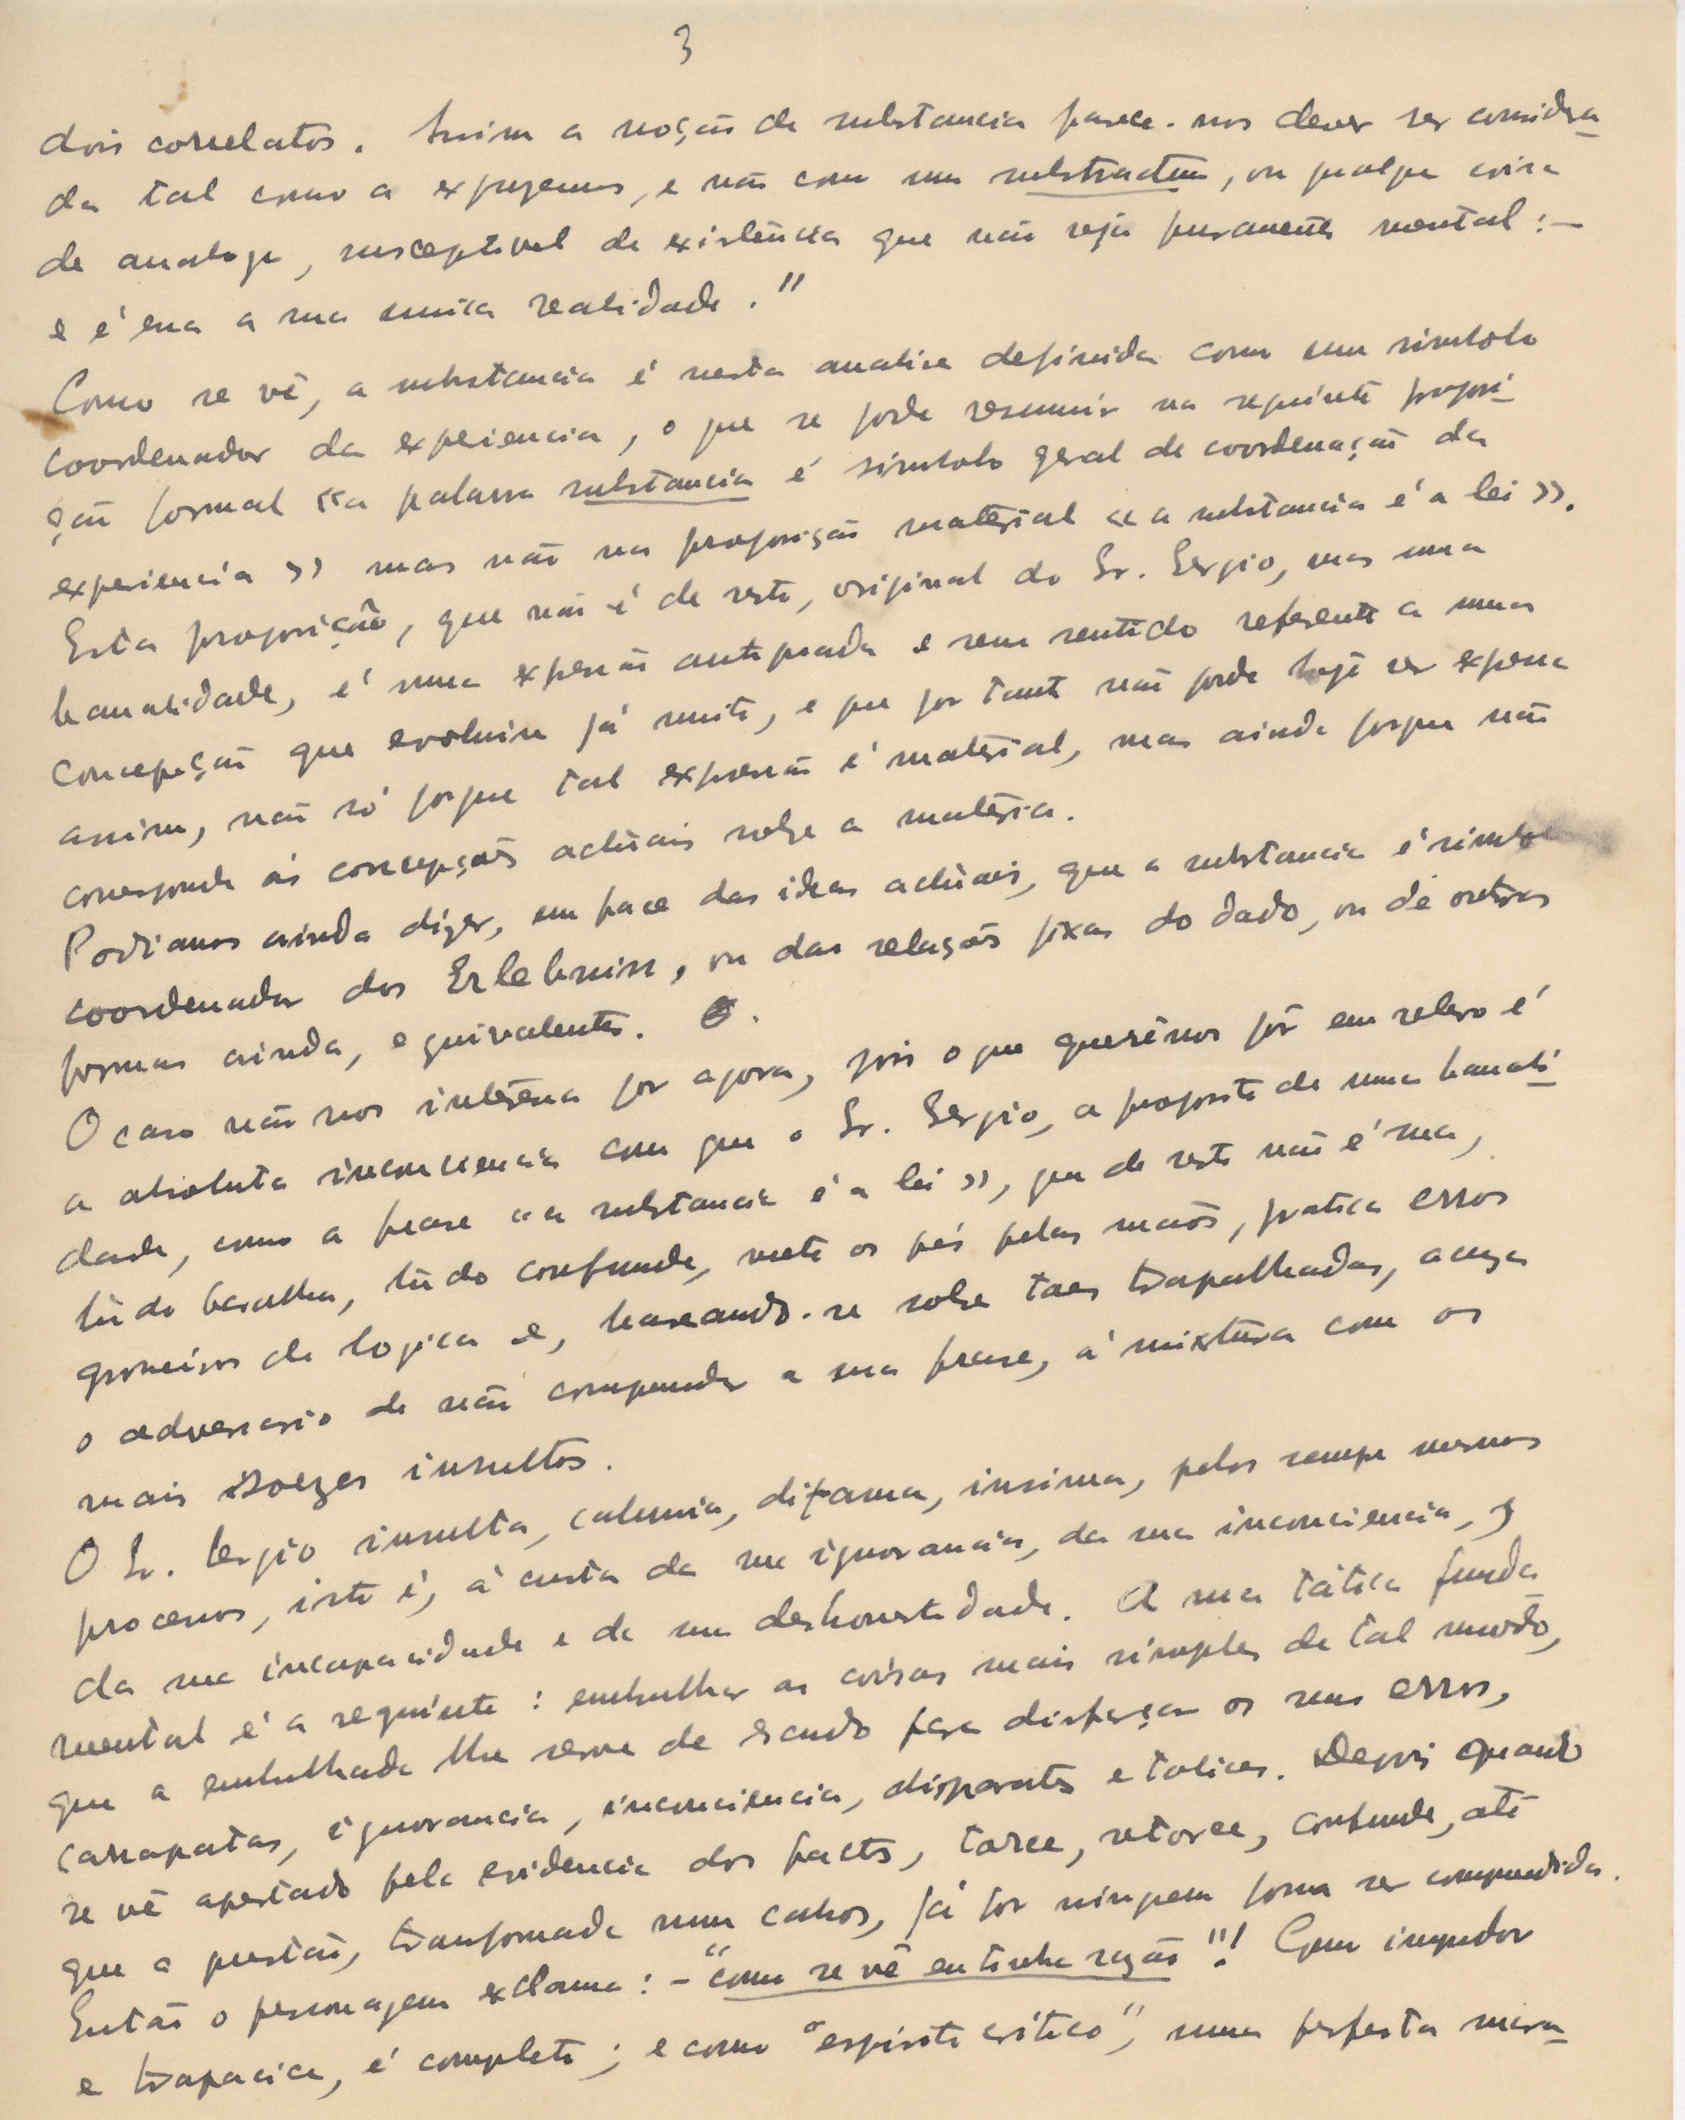 3
dois correlatos. Assim a noção de substancia parece-nos dever ser considera-
da tal como a expuzemos, e não como um substractum, ou qualquer coisa
de analogo, susceptivel de existência que não seja puramente mental: -
e é essa a sua unica realidade."
Como se vê, a substancia é nesta analise definida como um simbolo
coordenador da experiencia, o que se pode resumir na seguinte proposi-
ção formal «a palavra substancia é simbolo geral de coordenação da
experiencia» mas não na proposição material «a substancia é a lei».
Esta proposição, que não é de resto, original do Sr. Sergio, mas uma
banalidade, é uma expressão antiquada e sem sentido referente a uma
concepção que evoluiu já muito, e que por tanto não pode hoje ser expressa
assim, não só porque tal expressão é material, mas ainda porque não
corresponde ás concepções actuais sobre a matéria.
Podiamos ainda dizer, em face das ideas actuais, que a substancia é simbolo
coordenador dos Erlebniss, ou das relações fixas do dado, ou de outras
formas ainda, equivalentes.
O caso não nos interessa por agora, pois o que querêmos pôr em relevo é
a absoluta inconsciencia com que o Sr. Sergio, a proposito de uma banali-
dade, como a frase «a substancia é a lei», que de resto não é sua,
tudo baralha, tudo confunde, mete os pés pelas mãos, pratica erros
grosseiros de logica e, baseando-se sobre taes trapalhadas, acusa
o adversario de não compreender a sua frase, á mixtura com os
mais soezes insultos.
O Sr. Sergio insulta, calunia, difama, insinua, pelos sempre mesmos
processos, isto é, á custa da sua ignorancia, da sua inconciencia,
da sua incapacidade e da sua deshonestidade. A sua tática funda-
mental é a seguinte: embrulhar as coisas mais simples de tal modo,
que a embrulhada lhe serve de escudo para disfarçar os seus erros,
carrapatas, ignorancia, inconciencia, disparates e tolices. Depois quando
se vê apertado pela evidencia dos factos, torce, retorce, confunde, até
que a questão, transformada num cahos, já por ninguem possa ser compreendida.
Então o personagem exclama: - "como se vê eu tinha razão"! Como impudor
e trapacice, é completo; e como "espirito critico", uma perfeita mera-